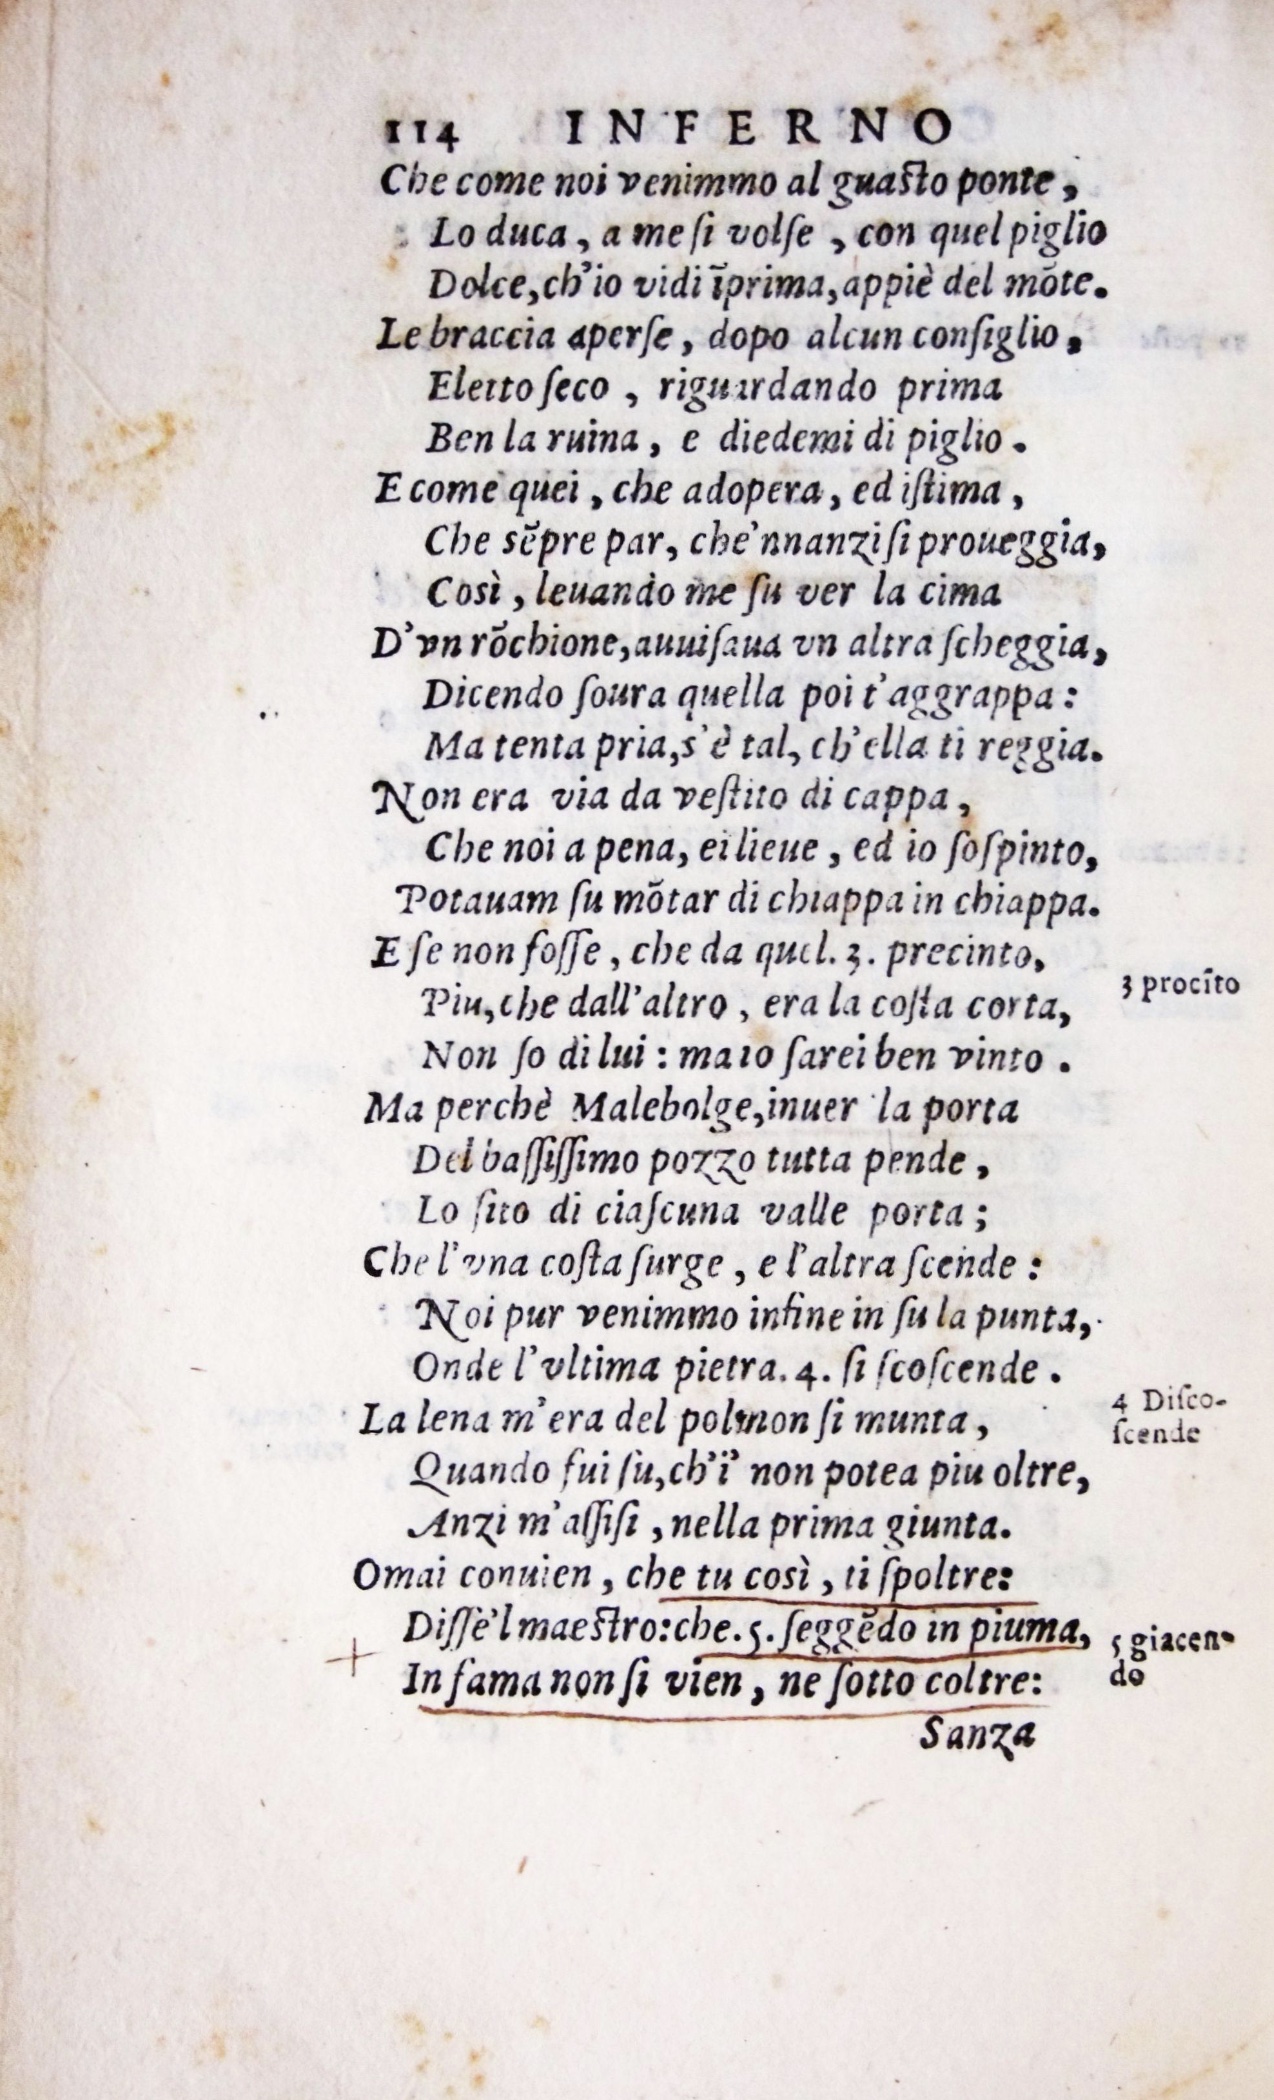 114 INFERNO
Che come noi venimmo al guaſto ponte,
Lo duca, a me ſi volſe, con quel piglio
Dolce, ch'io vidi īprima, appiè del mōte.
Le braccia aperſe, dopo alcun conſiglio,
Eletto ſeco, riguardando prima
Ben la ruina, e diedemi di piglio.
E come quei, che adopera, ed iſtima,
Che sēpre par, che'nnanzi ſi proueggia,
Così, leuando me ſu ver la cima
D'vn rōchione, auuiſaua vn altra ſcheggia,
Dicendo ſoura quella poi t'aggrappa:
Ma tenta pria, s'è tal, ch'ella ti reggia.
Non era via da veſtito di cappa,
Che noi a pena, ei lieue, ed io ſoſpinto,
Potauam ſu mōtar di chiappa in chiappa.
E ſe non foſſe, che da quel. 3. precinto,
3 procīto
Piu, che dall'altro, era la coſta corta,
Non ſo di lui: ma io ſarei ben vinto.
Ma perchè Malebolge, inuer la porta
Del baſſiſſimo pozzo tutta pende,
Lo ſito di ciaſcuna valle porta;
Che l'vna coſta ſurge, e l'altra ſcende:
Noi pur venimmo infine in ſu la punta,
Onde l'vltima pietra. 4. ſi ſcoſcende.
4 Diſco-
ſcende
La lena m'era del polmon ſi munta,
Quando fui ſù, ch'i' non potea piu oltre,
Anzi m'aſſiſi, nella prima giunta.
Omai conuien, che tu così, ti ſpoltre:
Diſſe'l maeſtro: che. 5. ſeggēdo in piuma,
5 giacen-
do
In fama non ſi vien, ne ſotto coltre:
Sanza